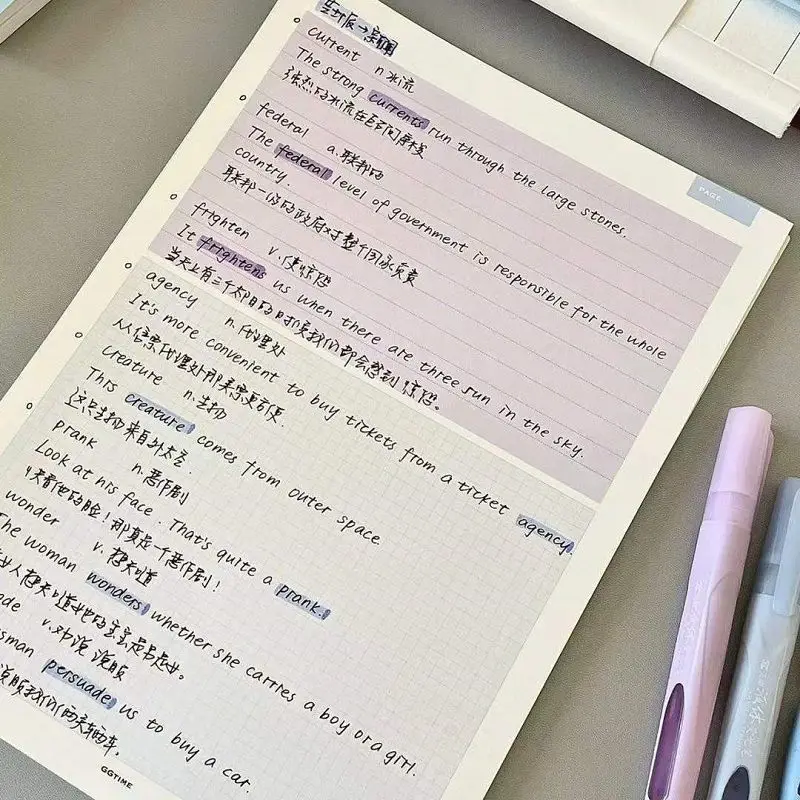 current n 水流
The strong currents run through the large stones.
强烈的水流在巨石间穿梭
federal a.联邦的
The federal level of government is responsible for the whole
country.
联邦一级的政府对整个国家负责
frighten v.使惊恐
It frightens us when there are three sun in the sky.
当天上有三个太阳的时候我们都会感到惊恐。
agency n.代理处
It's more convenient to buy tickets from a ticket agency.
从信票代理处那买票更方便.
creature n.生物
This creature comes from outer space
这只生物来自外太空.
prank n.恶作剧
Look at his face. That's quite a prank.
看他的脸!那真是一个恶作剧!
wonder v.想知道
The woman wonders whether she carries a boy or a girl.
女人想知道她的宝宝是男是女.
v.劝说 说服
persuade us to buy a car.
说服我们买辆车.
GGTIME
PAGE